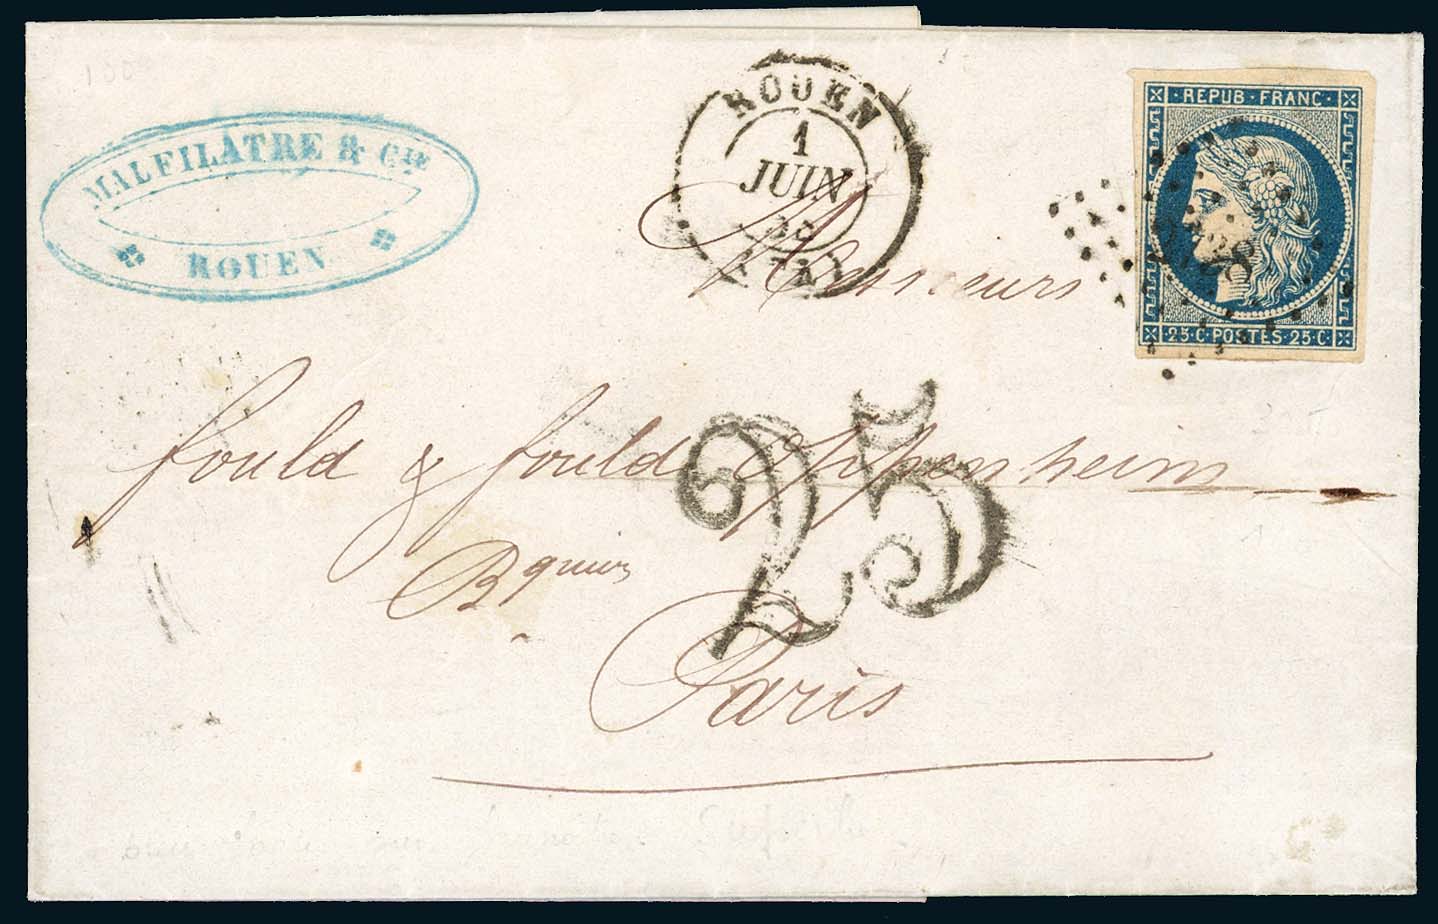 MALFILATRE & CIE
ROUEN
ROUEN
1
JUIN
(74)
REPUB·FRANC·
25·C·POSTES·25·C·
Messieurs
fould & fould Oppenheim
Bquiers
25
Paris